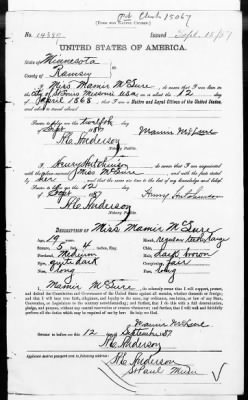 [FORM FOR NATIVE CITIZEN.]
No. 14389 Issued Sept. 15/87
UNITED STATES OF AMERICA.
State of Minnesota
County of Ramsey
I, Miss Mamie McClure, do swear that I was born in the
City of St Louis Missouri USA, on or about the 12 day of
April 1868, that I am a Native and Loyal Citizen of the United States,
and about to travel abroad.
Sworn to before me this twelfth
day of Sept 1887 Mamie McClure
H C Anderson
Notary Public.
I, Henry Hutchinson, do swear that I am acquainted
with the above named Miss McClure, and with the facts stated
by her, and that the same are true to the best of my knowledge and belief.
Sworn to before me this 12
day of Sept 1887 Henry Hutchinson
H C Anderson
Notary Public.
DESCRIPTION OF Miss Mamie McClure
Age, 19
Stature, 5 feet, 4 inches, Eng.
Forehead, Medium
Eyes,
Nose, long
Mouth,
Chin,
Hair, dark brown
Complexion, fair
Face, long
I, Mamie McClure, do solemnly swear that I will support, protect,
and defend the Constitution and Government of the United States against all enemies, whether domestic or foreign;
and that I will bear true faith, allegiance, and loyalty to the same, any ordinance, resolution, or law of any State,
Convention, or Legislature to the contrary notwithstanding; and further, that I do this with a full determination,
pledge, and purpose, without any mental reservation or evasion whatsoever; and further, that I will well and faithfully
perform all the duties which may be required of me by law. So help me God.
Mamie McClure
Sworn to before me this 12 day of September 87
H C Anderson
Applicant desires passport sent to following address:
H C Anderson
St Paul Minn